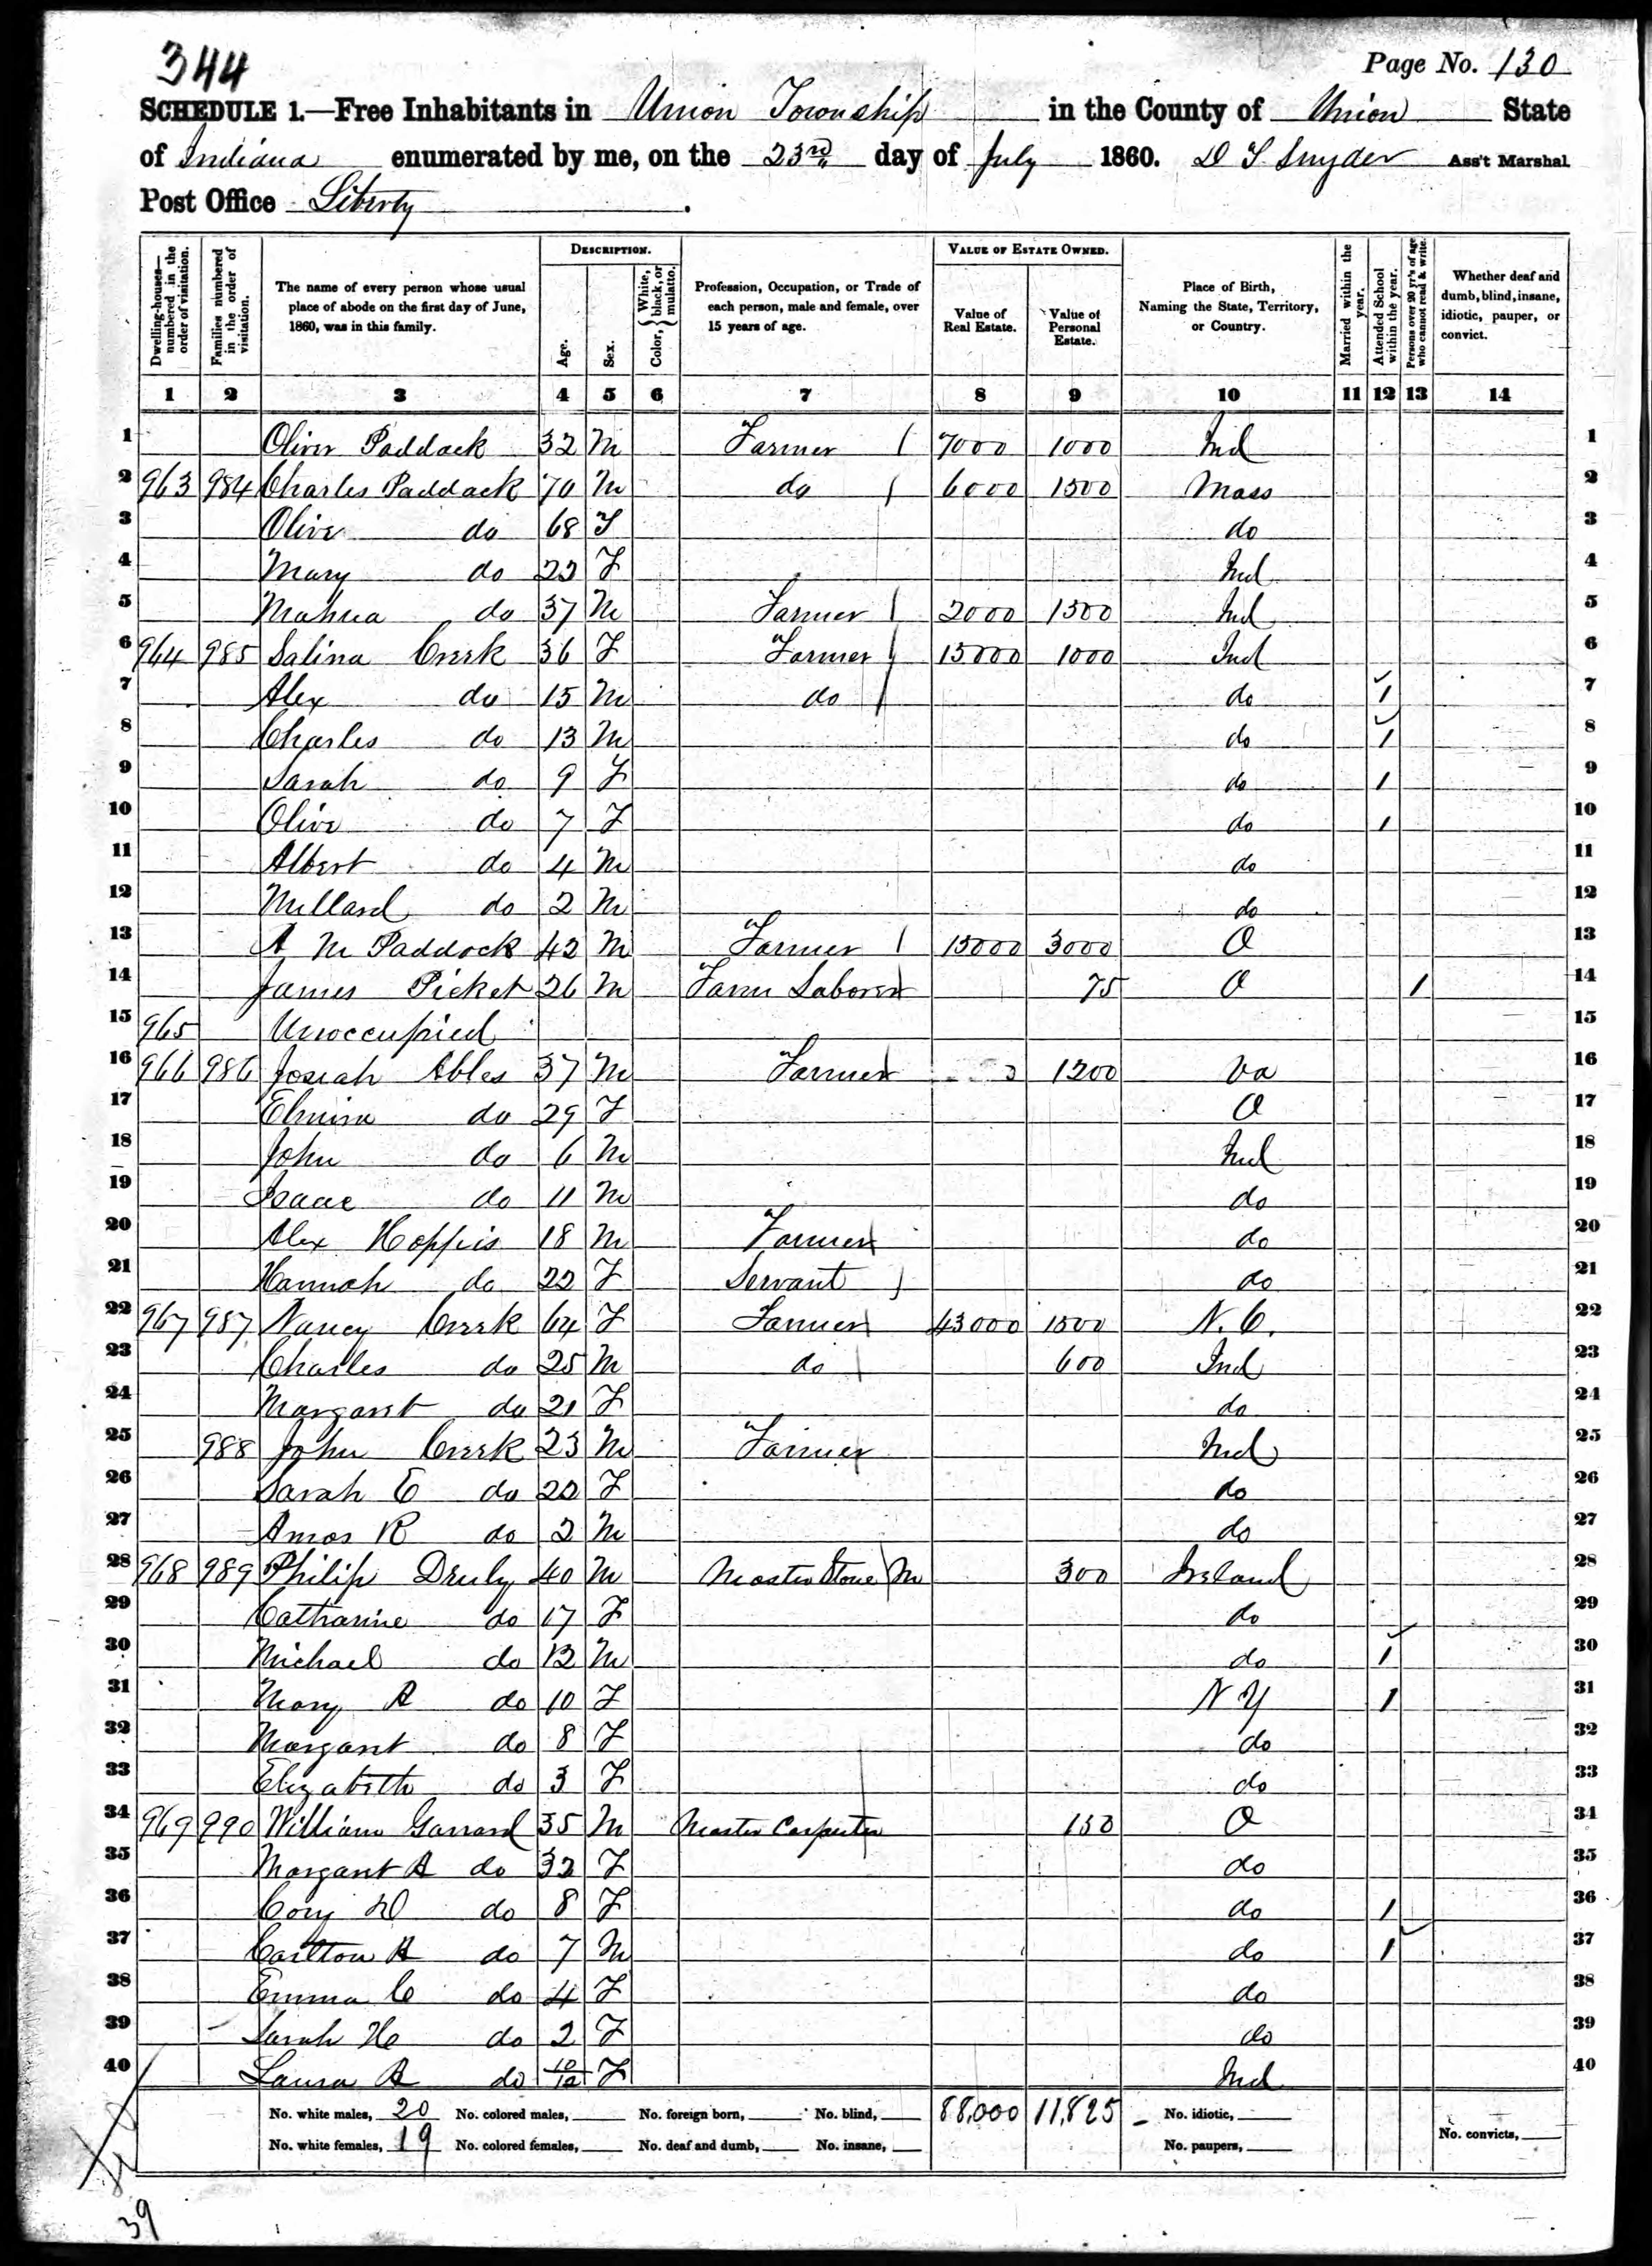 344
Page No. 130
SCHEDULE 1.—Free Inhabitants in Union Township in the County of Union State
of Indiana enumerated by me, on the 23rd day of July 1860. D S Snyder Ass't Marshal
Post Office Liberty.
Dwelling-houses—numbered in the order of visitation.
Families numbered in the order of visitation.
The name of every person whose usual place of abode on the first day of June, 1860, was in this family.
DESCRIPTION.
Age.
Sex.
Color, { White, black, or mulatto.
Profession, Occupation, or Trade of each person, male and female, over 15 years of age.
VALUE OF ESTATE OWNED.
Value of Real Estate.
Value of Personal Estate.
Place of Birth, Naming the State, Territory, or Country.
Married within the year.
Attended School within the year.
Persons over 20 yr's of age who cannot read & write.
Whether deaf and dumb, blind, insane, idiotic, pauper, or convict.
1 2 3 4 5 6 7 8 9 10 11 12 13 14
1 Oliver Paddack 32 M Farmer 7000 1000 Ind 1
2 963 984 Charles Paddack 70 M do 6000 1500 Mass 2
3 Olive do 68 F do 3
4 Mary do 22 F Ind 4
5 do 37 M Farmer 2000 1500 Ind 5
6 964 985 Salina Creek 36 F Farmer 15000 1000 Ind 6
7 Alex do 15 M do do 1 7
8 Charles do 13 M do 1 8
9 Sarah do 9 F do 1 9
10 Olive do 7 F do 1 10
11 Albert do 4 M do 11
12 Millard do 2 M do 12
13 A M Paddock 42 M Farmer 15000 3000 O 13
14 James Picket 26 M Farm Laborer 75 O 1 14
15 965 Unoccupied 15
16 966 986 Josiah Ables 37 M Farmer 1200 Va 16
17 Elmira do 29 F O 17
18 John do 6 M Ind 18
19 Isaac do 11 M do 19
20 Alex Hoppis 18 M Farmer do 20
21 Hannah do 22 F Servant do 21
22 967 987 Nancy Creek 64 F Farmer 43000 1500 N. C. 22
23 Charles do 25 M do 600 Ind 23
24 Margaret do 21 F do 24
25 988 John Creek 23 M Farmer Ind 25
26 Sarah E do 22 F do 26
27 Amos R do 2 M do 27
28 968 989 Philip Druly 40 M Master Stone M 300 Ireland 28
29 Catharine do 17 F do 29
30 Michael do 12 M do 1 30
31 Mary A do 10 F N Y 1 31
32 Margaret do 8 F do 32
33 Elizabeth do 3 F do 33
34 969 990 William Garrard 35 M Master Carpenter 150 O 34
35 Margaret A do 32 F do 35
36 do 8 F do 1 36
37 Carlton A do 7 M do 1 37
38 Emma C do 4 F do 38
39 Sarah do 2 F do 39
40 Laura A do 10/12 F Ind 40
No. white males, 20 No. colored males, No. foreign born, No. blind, 88,000 11,825 No. idiotic,
No. white females, 19 No. colored females, No. deaf and dumb, No. insane, No. paupers, No. convicts,
39